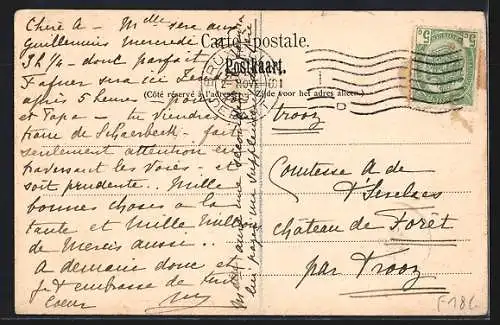 Chère A - Melle sera aux
Guillemins mercredi
3h 1/4 - donc parfait
sera ici
après 5 heures -
et Papa - tu viendras
tram de Schaerbeek - fait
seulement attention en
traversant les voies - et
soit prudente.. Mille
bonnes choses à la
tante et Mille Mille
de Mercis aussi..
A demain donc et
je t'embrasse de tout
Coeur
Carte postale.
Postkaart.
(Côté réservé à l'adresse. Zijde voor het adres alleen.)
Trooz
Comtesse A de
château de Forêt
par Trooz
F18c